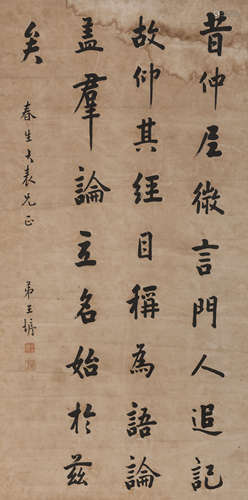 昔仲尼微言門人追記
故仰其經目稱為語論
蓋羣論立名始於茲
矣
春生大表兄正
弟王墉